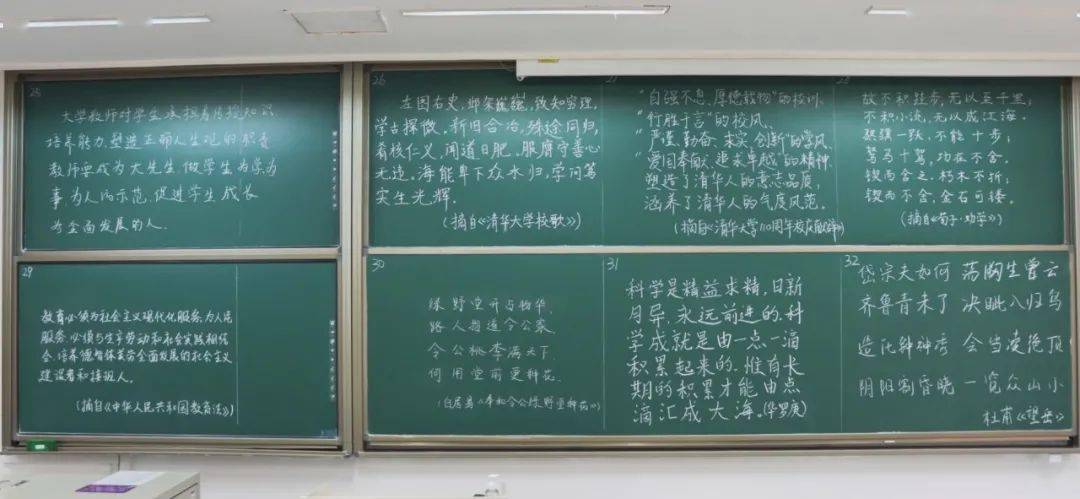 25
大学教师对学生承担着传授知识
培养能力、塑造正确人生观的职责
教师要成为大先生,做学生为学为
事为人的示范,促进学生成长
为全面发展的人.
26
左图右史,邺架巍巍,致知穷理,
学古探微,新旧合冶,殊途同归,
肴核仁义,闻道日肥,服膺守善心
无违.海能卑下众水归,学问笃
实生光辉.
(摘自《清华大学校歌》)
27
“自强不息、厚德载物”的校训,
“行胜于言”的校风、
“严谨、勤奋、求实、创新”的学风、
“爱国奉献、追求卓越”的精神,
塑造了清华人的意志品质,
涵养了清华人的气度风范.
(摘自《清华大学110周年校庆
28
故不积跬步,无以至千里;
不积小流,无以成江海.
骐骥一跃,不能十步;
驽马十驾,功在不舍.
锲而舍之,朽木不折;
锲而不舍,金石可镂.
(摘自《荀子·劝学》)
29
教育必须为社会主义现代化服务、为人民
服务,必须与生产劳动和社会实践相结
合,培养德智体美劳全面发展的社会主义
建设者和接班人.
(摘自《中华人民共和国教育法》)
30
绿野堂开占物华,
路人指道令公家.
令公桃李满天下,
何用堂前更种花.
(白居易《奉和令公绿野堂种花》)
31
科学是精益求精,日新
月异,永远前进的.科
学成就是由一点一滴
积累起来的.惟有长
期的积累才能由点
滴汇成大海.(华罗庚)
32
岱宗夫如何 荡胸生曾云
齐鲁青未了 决眦入归鸟
造化钟神秀 会当凌绝顶
阴阳割昏晓 一览众山小
杜甫《望岳》